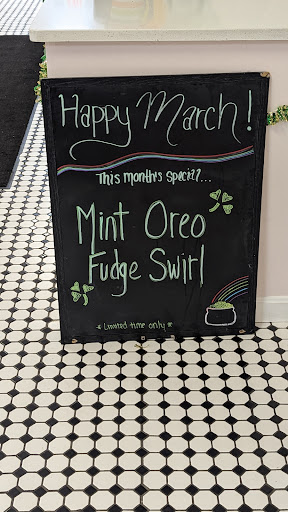 Happy March!
This month's special...
Mint Oreo
Fudge Swirl
* Limited time only *